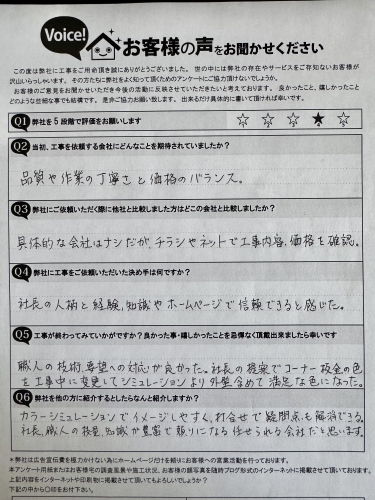 Voice!
お客様の声をお聞かせください
この度は弊社に工事をご用命頂き誠にありがとうございました。世の中には弊社の存在やサービスをご存知ないお客様が
沢山いらっしゃいます。その方たちに弊社をよく知って頂くためのアンケートにご協力頂けないでしょうか。
お客様のご意見をお聞かせいただき今後の活動に反映させていただきたいと考えております。良かったこと、嬉しかったこと
どのような些細な事でも結構です。是非ご協力お願い致します。出来るだけ具体的に書いて頂ければ幸いです。
Q1 弊社を5段階で評価をお願いします ☆ ☆ ☆ ★ ☆
Q2 当初、工事を依頼する会社にどんなことを期待されていましたか?
品質や作業の丁寧さと価格のバランス。
Q3 弊社にご依頼いただく際に他社と比較しました方はどこの会社と比較しましたか?
具体的な会社はナシだが、チラシやネットで工事内容、価格を確認。
Q4 弊社に工事をご依頼いただいた決め手は何ですか?
社長の人柄と経験、知識やホームページで信頼できると感じた。
Q5 工事が終わってみていかがですか?良かった事・嬉しかったことを忌憚なく頂戴出来ましたら幸いです
職人の技術、要望への対応が良かった。社長の提案でコーナー板金の色
を工事中に変更してシミュレーションより外壁含めて満足な色になった。
Q6 弊社を他の方に紹介するとしたらなんと紹介しますか?
カラーシミュレーションでイメージしやすく、打合せで疑問点も解消できる。
社長、職人の技量、知識が豊富で頼りになる任せられる会社だと思います。
*弊社は広告宣伝費を極力かけない為にホームページだけを頼りにお客様への営業活動を行っております。
本アンケート用紙またはお客様宅の調査風景や施工状況、お客様の顔写真を随時ブログ形式のインターネットに掲載させて頂いております。
上記内容をインターネットや印刷物に掲載させて頂いてもよろしいでしょうか?
下の中から〇印をお付け下さい。